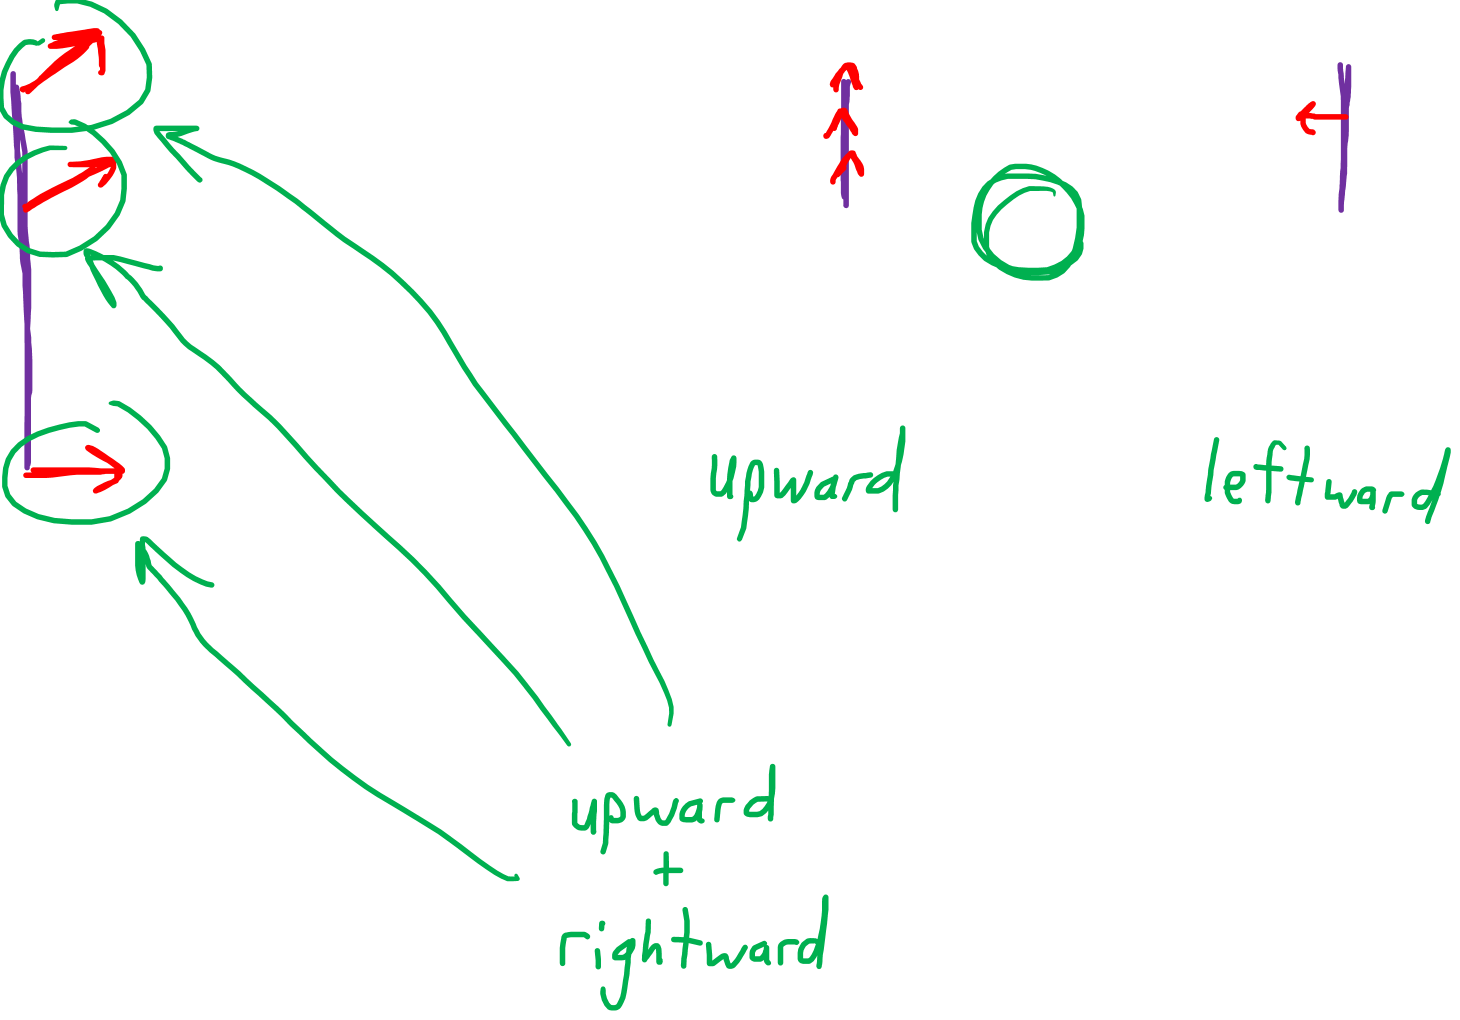 upward
leftward
upward
+
rightward